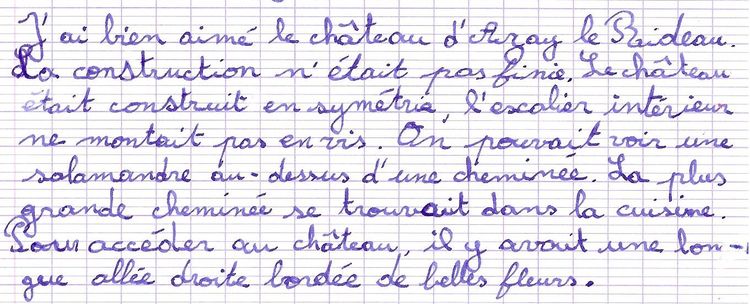 J'ai bien aimé le château d'Azay le Rideau.
La construction n'était pas finie. Le château
était construit en symétrie, l'escalier intérieur
ne montait pas en vis. On pouvait voir une
salamandre au-dessus d'une cheminée. La plus
grande cheminée se trouvait dans la cuisine.
Pour accéder au château, il y avait une lon-
gue allée droite bordée de belles fleurs.